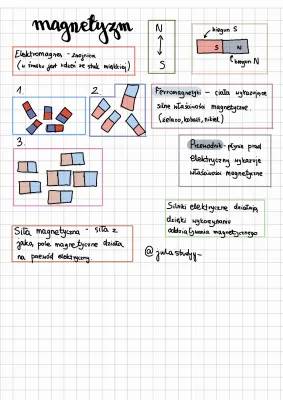 magnetyzm
Elektromagnes - zwojnica
(w środku jest rdzeń ze stali miękkiej)
N
S
biegun S
S N
biegun N
1.
2.
3.
Ferromagnetyki - ciała wykazujące
silne właściwości magnetyczne.
(żelazo, kobalt, nikiel)
Przewodnik - płynie prąd
elektryczny wykazuje
właściwości magnetyczne
Silniki elektryczne działają
dzięki wykorzystaniu
oddziaływania magnetycznego
Siła magnetyczna - siła z
jaką pole magnetyczne działa
na przewód elektryczny.
@julastudyy_